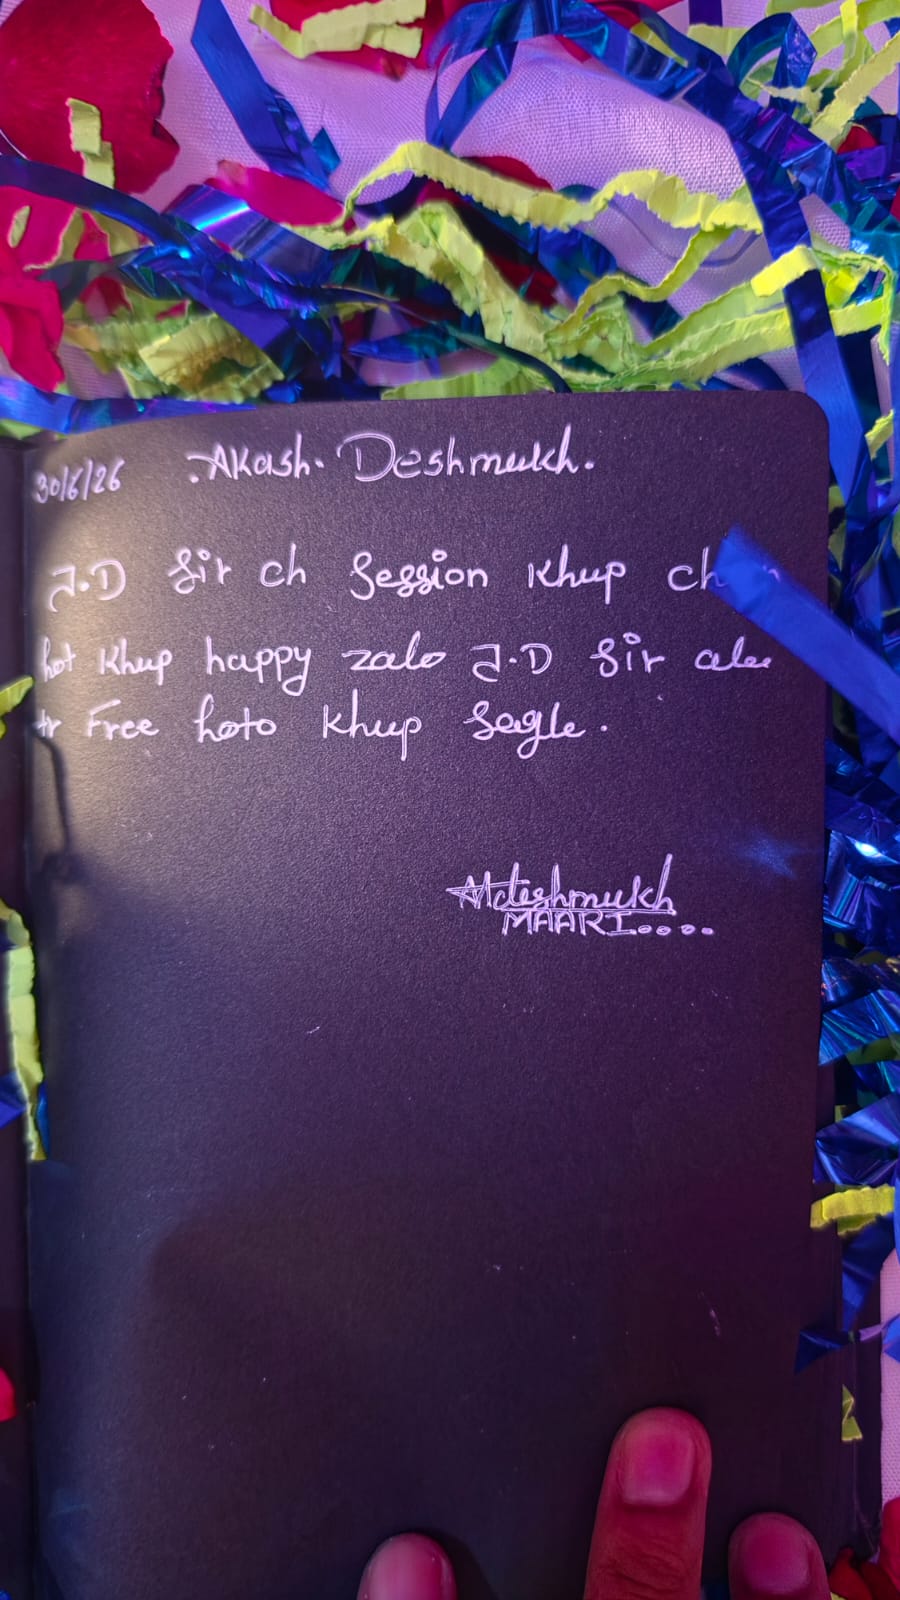 30/6/26 .Akash. Deshmukh.
J.D Sir ch Session Khup
hot Khup happy zalo J.D Sir ale
tr Free hoto Khup Sagle.
MAARI....